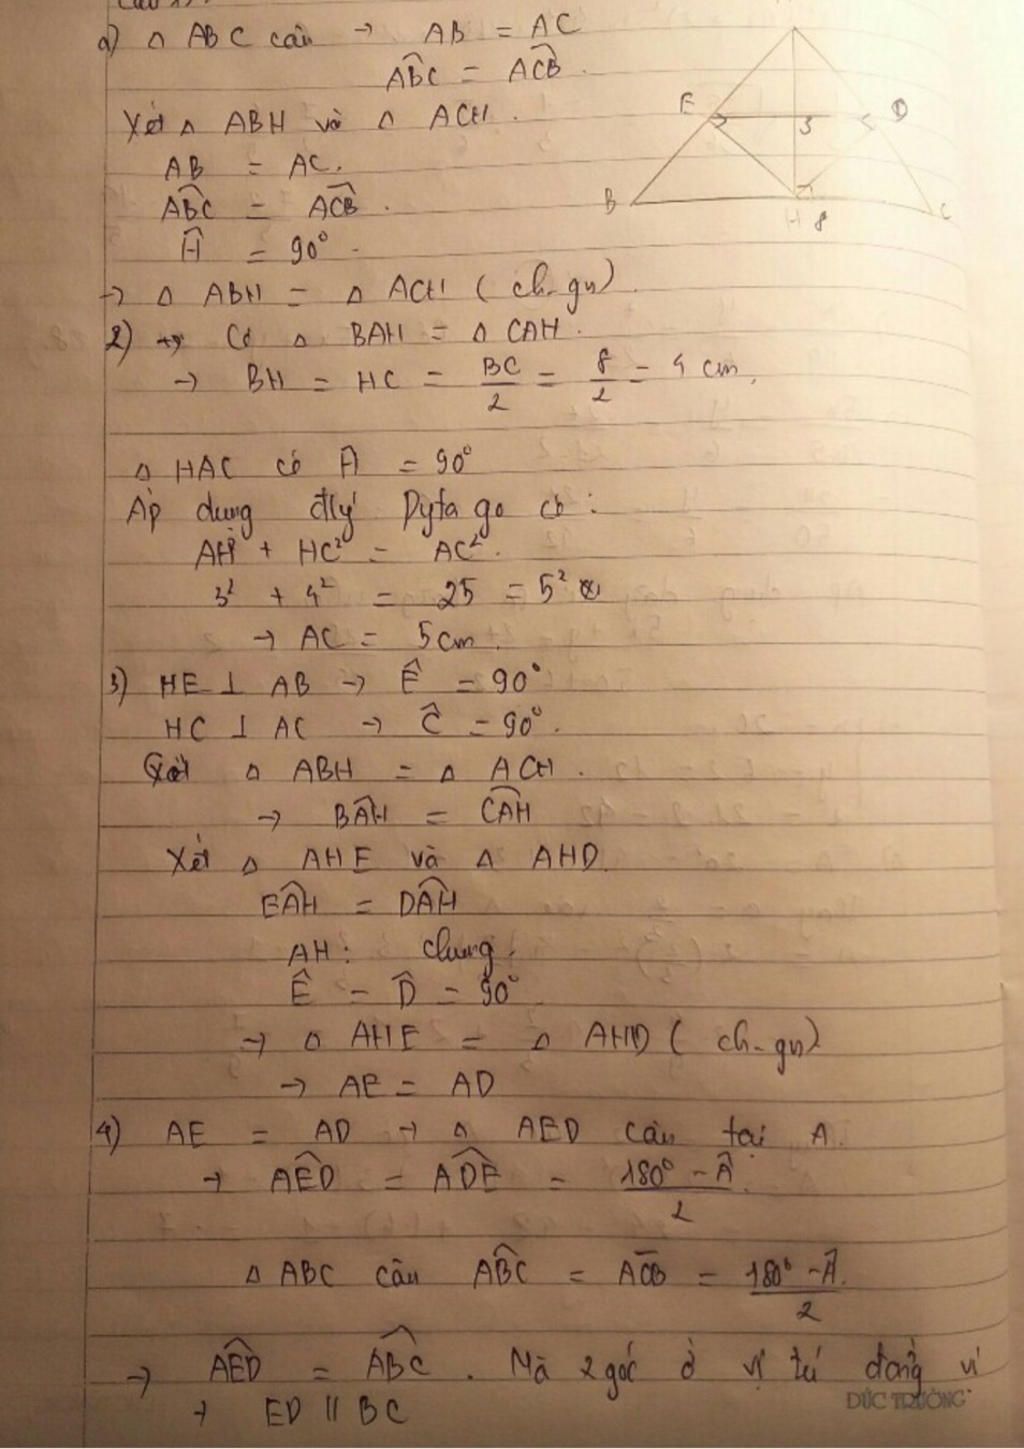 a) △ ABC cân → AB = AC
ABC = ACB
Xét △ ABH và △ ACH.
AB = AC.
ABC = ACB.
Ĥ = 90° .
→ △ ABH = △ ACH ( ch-gn)
2) Có △ BAH = △ CAH.
→ BH = HC = BC/2 = 8/2 = 4 cm.
△ HAC có Ĥ = 90°
Áp dụng đlý Pytago có :
AH² + HC² = AC².
3² + 4² = 25 = 5²
→ AC = 5cm.
3) HE ⊥ AB → Ê = 90°
HC ⊥ AC → Ĉ = 90°.
△ ABH = △ ACH .
→ BAH = CAH
Xét △ AHE và △ AHD.
EAH = DAH
AH : chung.
Ê = D̂ = 90°
→ △ AHE = △ AHD ( ch-gn)
→ AE = AD
4) AE = AD → △ AED cân tại A.
→ AED = ADE = 180° - Â / 2
△ ABC cân ABC = ACB = 180° - Â / 2
→ AED = ABC . Mà 2 góc ở vị trí đồng vị
→ ED // BC
E
D
3
B
H 8
C
ĐỨC TRƯỜNG